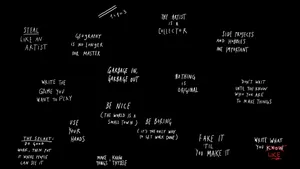 1+1=3
THE ARTIST
IS A
COLLECTOR
STEAL
LIKE AN
ARTIST
GEOGRAPHY
IS NO LONGER
OUR MASTER
SIDE PROJECTS
AND HOBBIES
ARE IMPORTANT
GARBAGE IN,
GARBAGE OUT
WRITE THE
BOOK YOU
WANT TO READ
NOTHING
IS
ORIGINAL
DON'T WAIT
UNTIL YOU KNOW
WHO YOU ARE
TO MAKE THINGS
BE NICE
(THE WORLD IS A
SMALL TOWN)
BE BORING
(IT'S THE ONLY WAY
TO GET WORK DONE)
USE
YOUR
HANDS
FAKE IT
'TIL
YOU MAKE IT
WRITE WHAT
YOU KNOW
LIKE
THE SECRET:
DO GOOD
WORK, THEN PUT
IT WHERE PEOPLE
CAN SEE IT
MAKE
THINGS,
KNOW
THYSELF